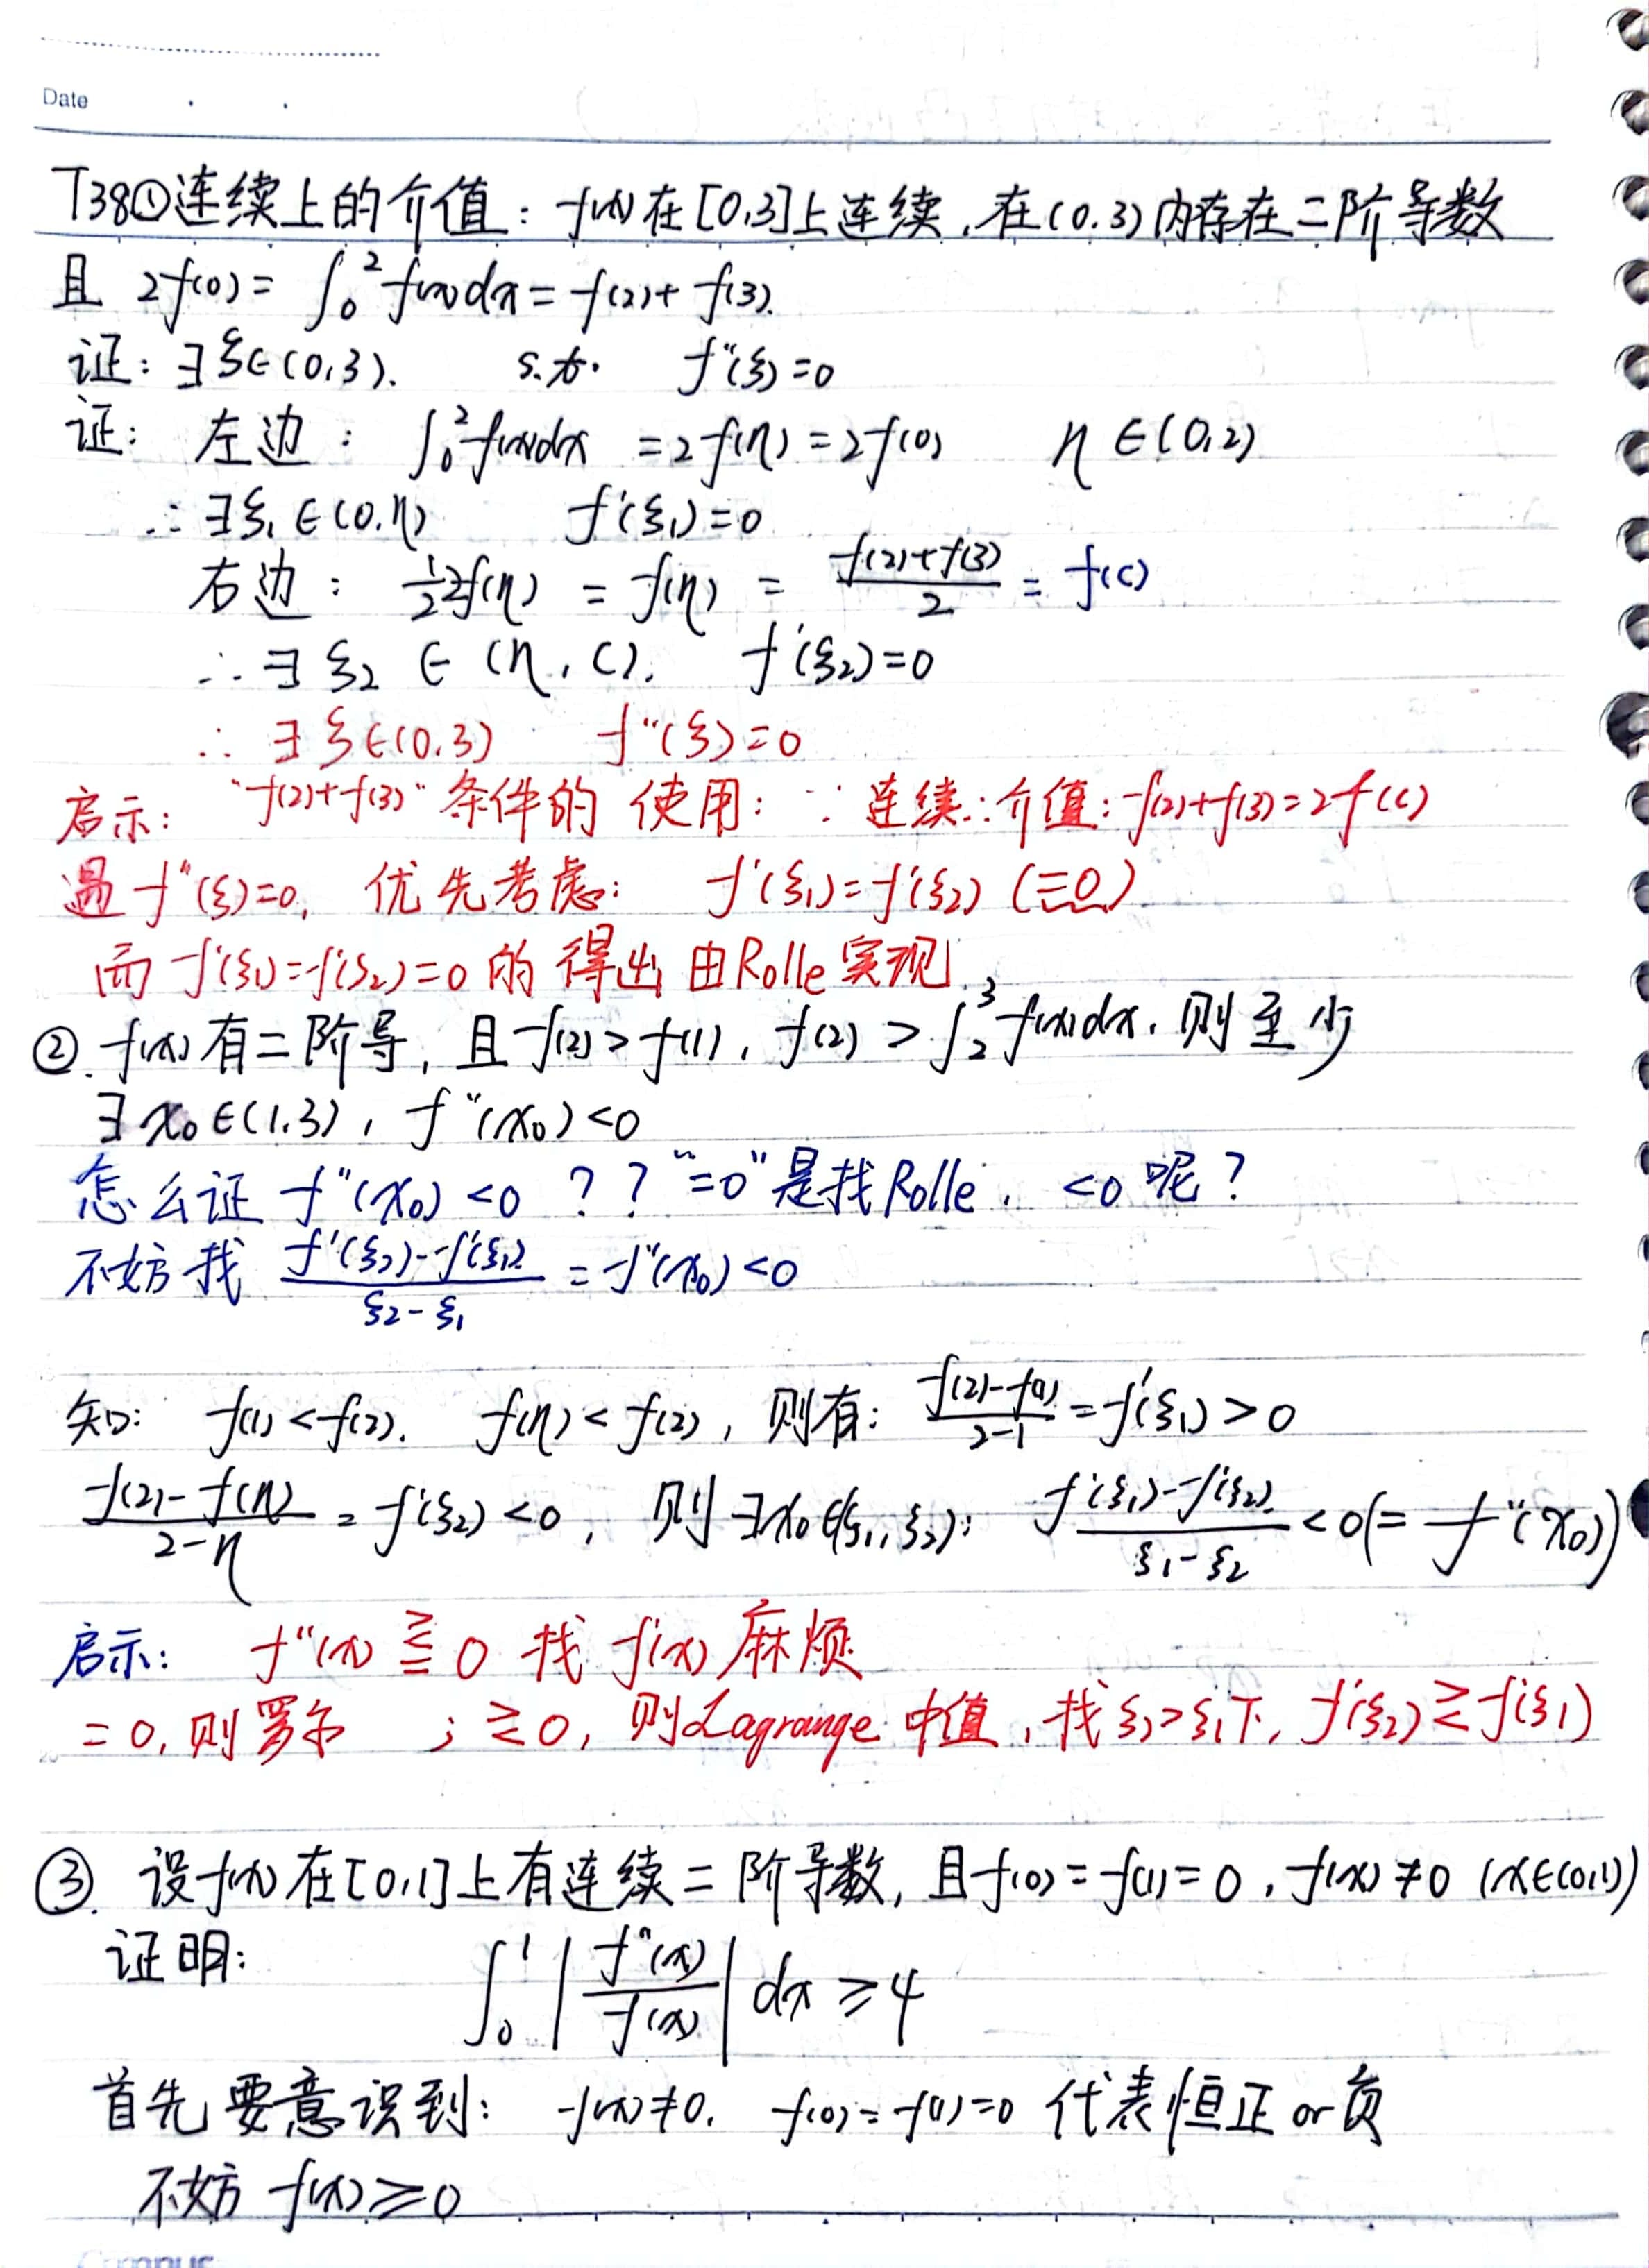 Date
T38①连续上的介值：f(x)在[0,3]上连续，在(0,3)内存在二阶导数
且 2f(0)=∫₀²f(x)dx=f(2)+f(3).
证：∃ξ∈(0,3). s.t. f''(ξ)=0
证：左边：∫₀²f(x)dx =2f(η)=2f(0) η∈(0,2)
∴∃ξ₁∈(0,η) f'(ξ₁)=0
右边：½2f(η) = f(η) = (f(2)+f(3))/2 = f(c)
∴∃ξ₂∈(η,c). f'(ξ₂)=0
∴∃ξ∈(0,3) f''(ξ)=0
启示："f(2)+f(3)"条件的使用：∵连续∴介值：f(2)+f(3)=2f(c)
遇f''(ξ)=0，优先考虑：f'(ξ₁)=f'(ξ₂)(=0)
而f'(ξ₁)=f'(ξ₂)=0的得出由Rolle实现
②. f(x)有二阶导，且f(2)>f(1)，f(2)>∫₂³f(x)dx，则至少
∃x₀∈(1,3)，f''(x₀)<0
怎么证f''(x₀)<0？？"=0"是找Rolle，<0呢？
不妨找 (f'(ξ₂)-f'(ξ₁))/(ξ₂-ξ₁) = f''(x₀)<0
知：f(1)<f(2). f(η)<f(2)，则有：(f(2)-f(1))/(2-1)=f'(ξ₁)>0
(f(2)-f(η))/(2-η)=f'(ξ₂)<0，则∃x₀∈(ξ₁,ξ₂)：(f'(ξ₁)-f'(ξ₂))/(ξ₁-ξ₂)<0(=f''(x₀))
启示：f''(x)⪌0 找f'(x)麻烦
=0，则罗尔；≷0，则Lagrange中值，找ξ₂>ξ₁下，f'(ξ₂)≷f'(ξ₁)
③. 设f(x)在[0,1]上有连续二阶导数，且f(0)=f(1)=0，f(x)≠0 (x∈(0,1))
证明：
∫₀¹|f''(x)/f(x)|dx≥4
首先要意识到：f(x)≠0. f(0)=f(1)=0代表恒正or负
不妨f(x)≥0